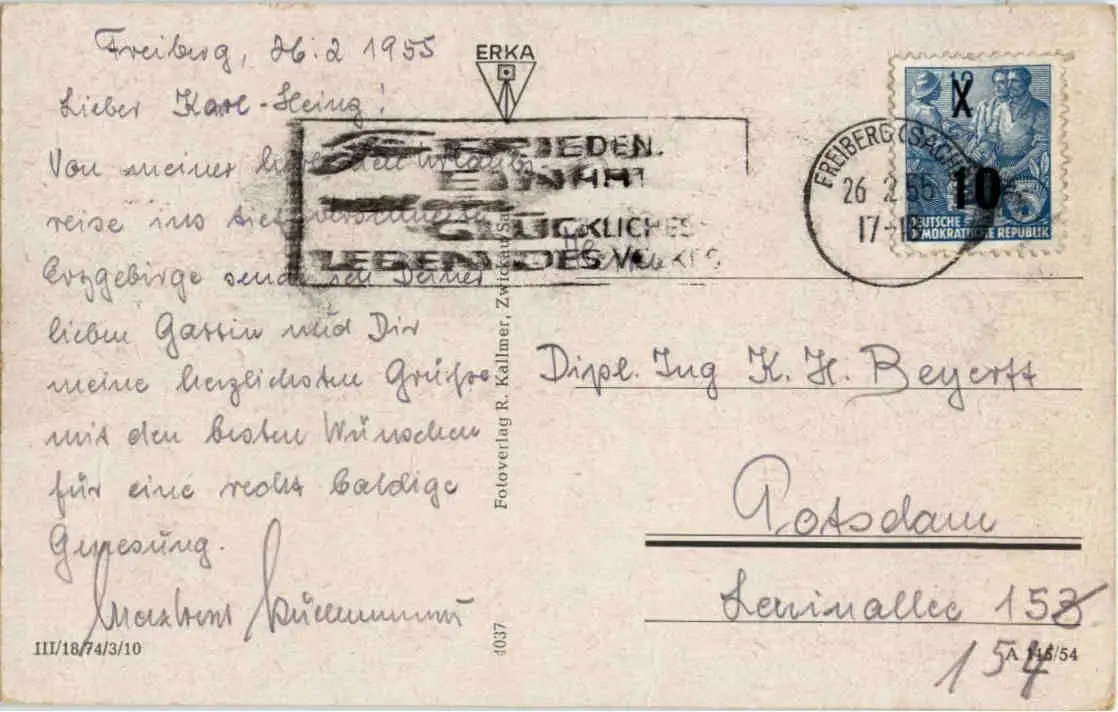 Freiberg, 26.2 1955
Lieber Karl-Heinz!
Von meiner
reise ins
Erzgebirge sende ich Deiner
lieben Gattin und Dir
meine herzlichsten Grüsse
mit den besten Wünschen
für eine recht baldige
Genesung.
III/18/74/3/10
ERKA
FRIEDEN.
EINHEIT
GLÜCKLICHES
LEBEN DES VOLKES
Fotoverlag R. Kallmer, Zwickau/Sa.
4037
FREIBERG (SACHS
26 2 55
17-1
12
X
10
DEUTSCHE
DEMOKRATISCHE REPUBLIK
Dipl. Ing K. H.
Potsdam
Leninallee 153
154
A 145/54